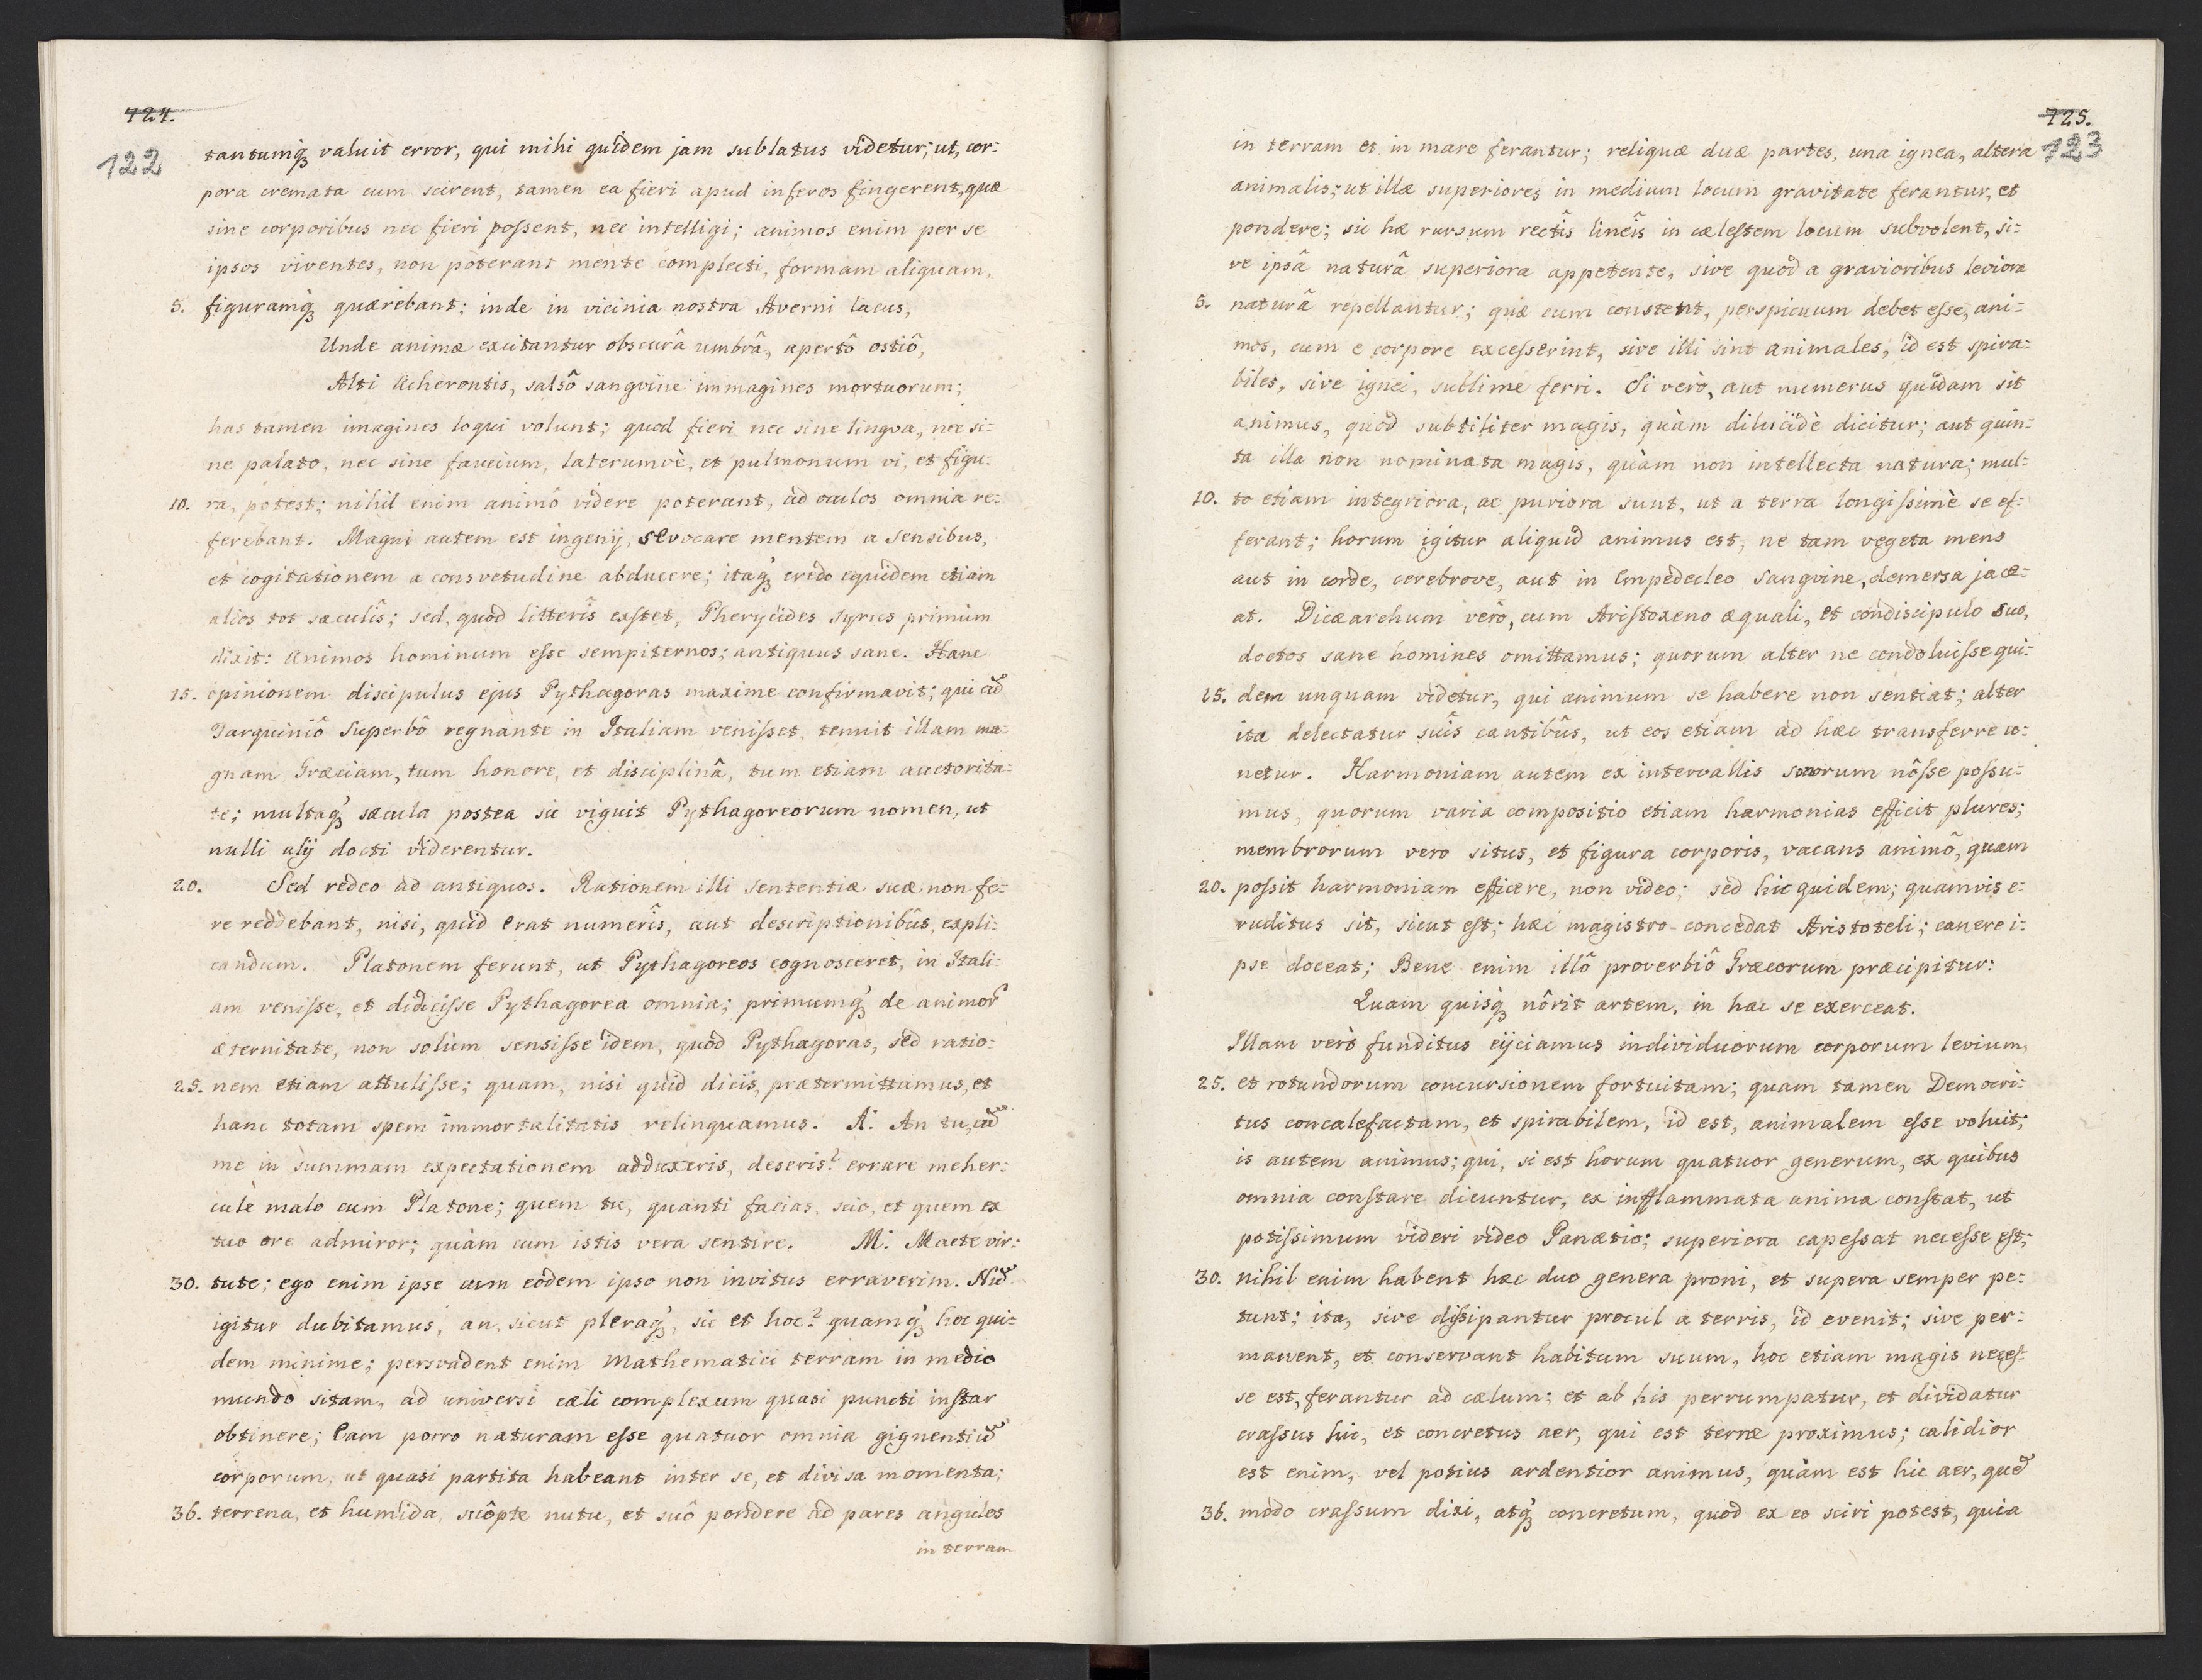 724.
122
tantumq́ꝫ valuit error, qui mihi quidem jam sublatus videtur; ut, cor:
pora cremata cum scirent, tamen ea fieri apud inferos fingerent, quæ
sine corporibus nec fieri poſsent, nec intelligi; animos enim per se
ipsos viventes, non poterant mente complecti, formam aliquam,
5. figuramq́ꝫ quærebant; inde in vicinia nostra Averni lacus,
Unde animæ excitantur obscurâ umbrâ, apertô ostiô,
Alti Acherontis, salsô sangvine immagines mortuorum;
has tamen imagines loqui volunt; quod fieri nec sine lingva, nec si:
ne palato, nec sine faucium, laterumvè, et pulmonum vi, et figu:
10. ra, potest; nihil enim animô videre poterant, ad oculos omnia re:
ferebant. Magni autem est ingenij, sevocare mentem a sensibus,
et cogitationem a consvetudine abducere; itaq́ꝫ credo equidem etiam
alios tot sæculîs; sed, quod litterîs exſtet, Pherycides Syrus primùm
dixit: animos hominum eſse sempiternos; antiquus sane. Hanc
15. opinionem discipulus ejus Pythagoras maxime confirmavit; qui cũ
Tarquiniô Superbô regnante in Italiam veniſset, tenuit illam ma:
gnam Græciam, tum honore, et disciplinâ, tum etiam auctorita:
te; multaq́ꝫ sæcula postea sic viguit Pythagoreorum nomen, ut
nulli alij docti viderentur.
20. Sed redeo ad antiquos. Rationem illi sententiæ suæ non fe:
re reddebant, nisi, quid erat numerîs, aut descriptionibûs, expli:
candum. Platonem ferunt, ut Pythagoreos cognosceret, in Itali:
am veniſse, et didiciſse Pythagorea omnia; primumq́ꝫ de animor̃
æternitate, non solùm sensiſse idem, quòd Pythagoras, sed ratio:
25. nem etiam attuliſse; quam, nisi quid dicis, prætermittamus, et
hanc totam spem immortalitatis relinquamus. A: An tu, cũ
me in summam expectationem adduxeris, deseris? errare meher:
cule malo cum Platone; quem tu, quanti facias, scio, et quem ex
tuo ore admiror; quàm cum istis vera sentire. M: Macte vir:
30. tute; ego enim ipse cum eodem ipso non invitus erraverim. Nũ
igitur dubitamus, an, sicut pleraq́ꝫ, sic et hoc? quamq́ꝫ hoc qui:
dem minime; persvadent enim Mathematici terram in medio
mundo sitam, ad universi cæli complexum quasi puncti inſtar
obtinere; Eam porro naturam eſse quatuor omnia gignentiũ
corporum, ut quasi partita habeant inter se, et divisa momenta;
36. terrena, et humida, suôpte nutu, et suô pondere ad pares angulos
in terram
725.
123
in terram et in mare ferantur; reliquæ duæ partes, una ignea, altera
animalis; ut illæ superiores in medium locum gravitate ferantur, et
pondere; sic hæ rursum rectîs lineîs in cæleſtem locum subvolent, si:
ve ipsâ naturâ superiora appetente, sive quod a gravioribus leviora
5. naturâ repellantur; quæ cum constent, perspicuum debet eſse, ani:
mos, cum e corpore exceſserint, sive illi sint animales, id est spira:
biles, sive ignei, sublime ferri. Si verò, aut numerus quidam sit
animus, quod subtiliter magis, quàm dilucidè dicitur; aut quin:
ta illa non nominata magis, quàm non intellecta natura; mul:
10. to etiam integriora, ac puriora sunt, ut a terra longiſsimè se ef:
ferant; horum igitur aliquid animus est, ne tam vegeta mens
aut in corde, cerebrove, aut in Empedecleo sangvine, demersa jace:
at. Dicæarchum verò, cum Ariſtoxeno æquali, et condiscipulo suo,
doctos sane homines omittamus; quorum alter ne condoluiſse qui:
15. dem unquam videtur, qui animum se habere non sentiat; alter
ita delectatur suîs cantibûs, ut eos etiam ad hæc transferre co:
netur. Harmoniam autem ex intervallis sonorum nôſse poſsu:
mus, quorum varia compositio etiam harmonias efficit plures;
membrorum vero situs, et figura corporis, vacans animô, quam
20. poſsit harmoniam efficere, non video; sed hic quidem; quamvis e:
ruditus sit, sicut eſt; hæc magistro concedat Aristoteli; canere i:
pse doceat; Bene enim illô proverbiô Græcorum præcipitur:
Quam quisq́ꝫ nôrit artem, in hac se exerceat.
Illam verò funditus eijciamus individuorum corporum levium,
25. et rotundorum concursionem fortuitam; quam tamen Democri:
tus concalefactam, et spirabilem, id est, animalem eſse voluit;
is autem animus; qui, si est horum quatuor generum, ex quibus
omnia conſtare dicuntur, ex inflammata anima conſtat, ut
potiſsimum videri video Panætio; superiora capeſsat neceſse eſt;
30. nihil enim habent hæc duo genera proni, et supera semper pe:
tunt; ita, sive diſsipantur procul a terris, id evenit; sive per:
manent, et conservant habitum suum, hoc etiam magis neceſ:
se est, ferantur ad cælum; et ab his perrumpatur, et dividatur
craſsus hic, et concretus aer, qui est terræ proximus; calidior
est enim, vel potius ardentior animus, quàm est hic aer, quẽ
36. modo craſsum dixi, atq́ꝫ concretum, quod ex eo sciri potest, quia